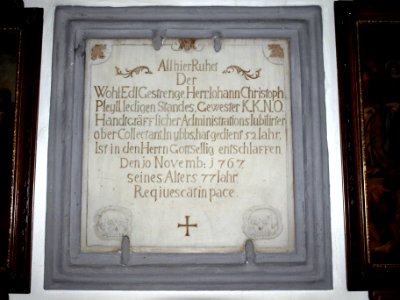 Allhier Ruhet
Der
Wohl Edl Gestrenge Herr Johann Christoph
Pleÿll, ledigen Standes, Gewester K.K.N.Ö.
Handtgräfflicher Administrations Iubilirter
ober Collectant, In ÿbbs, hat gedient 52 Iahr,
Ist in den Herrn Gottseelig entschlaffen
Den 10 Novemb: 1767
seines Alters 77 Iahr
Requiescat in pace.